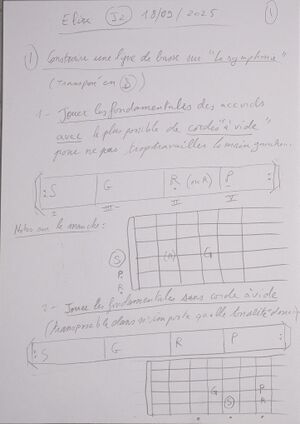 Elise J2 18/09/2025 1
1 Construire une ligne de basse sur "Le symphonie"
(transposé en D)
1- Jouer les fondamentales des accords
avec le plus possible de cordes "à vide"
pour ne pas trop travailler la main gauche.
S G R (ou R) P
I III II V
Notes sur le manche :
S (R) G
P
R
2- Jouer les fondamentales sans corde à vide
(transposable dans n'importe quelle tonalité
S G R P
G P
S R